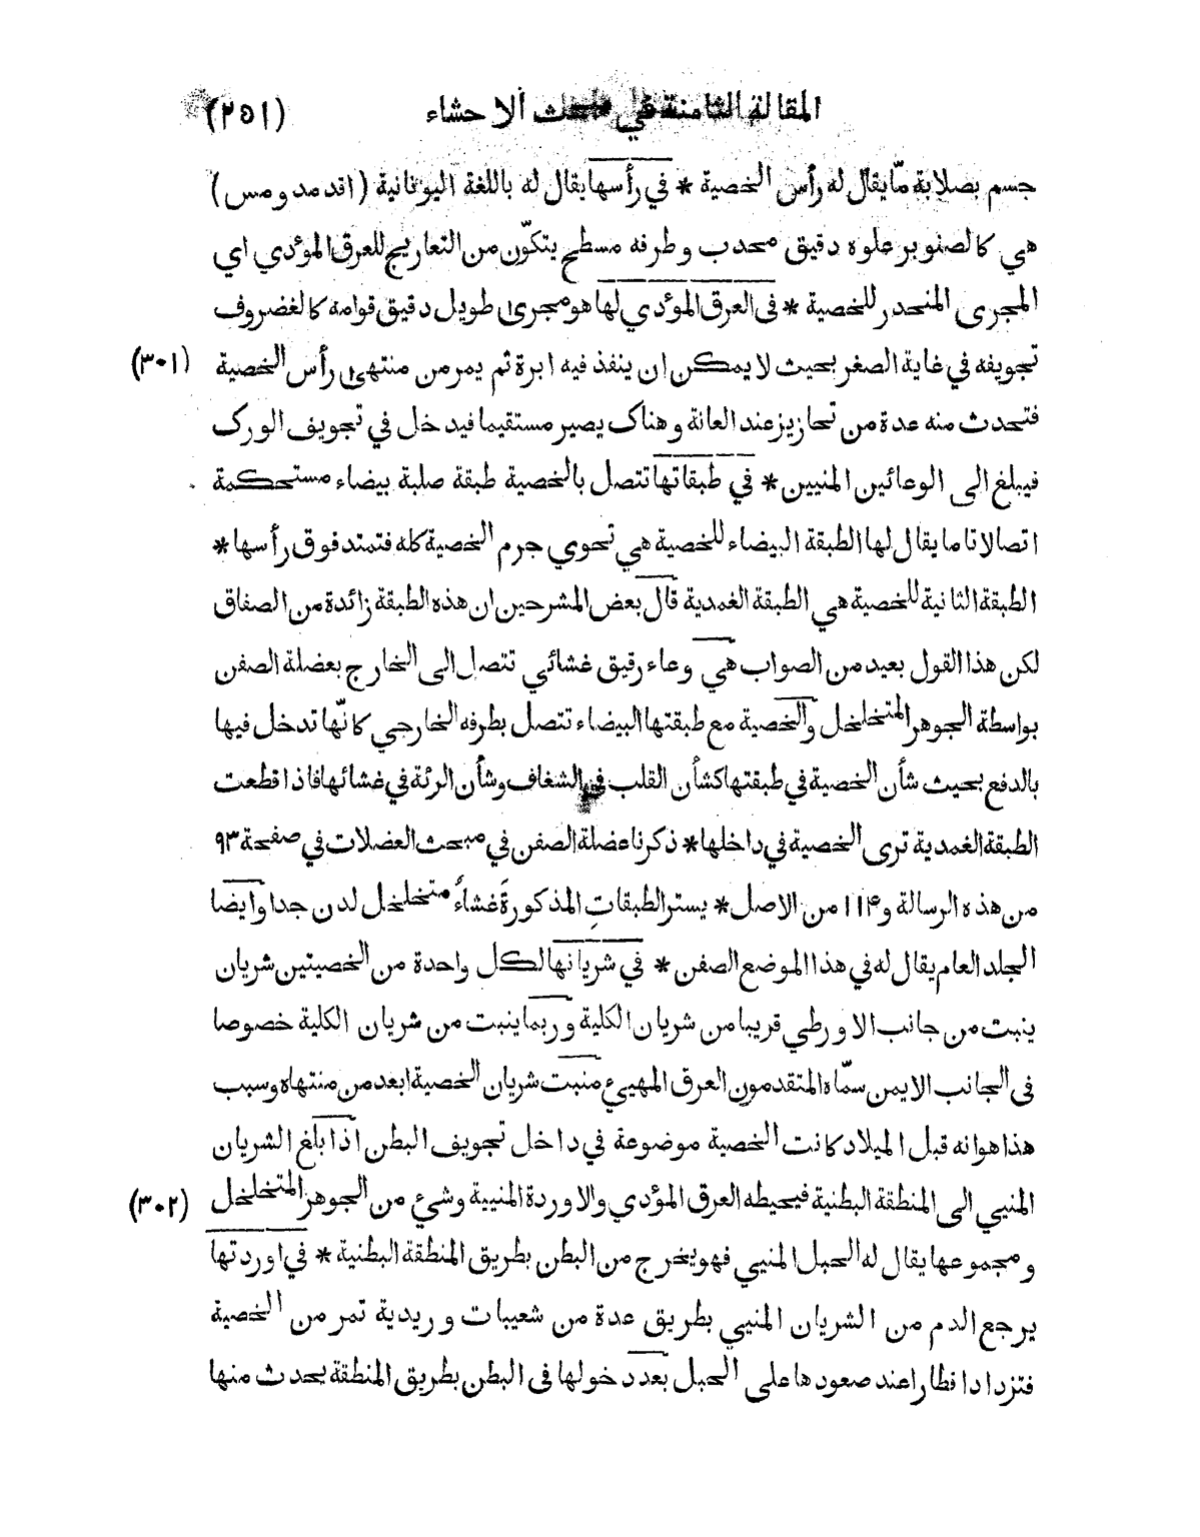 المقالة الثامنة في مبحث ألاحشاء (٢٥١)
جسم بصلابة مّا يقال له رأس الخصية * في رأسها يقال له باللغة اليونانية (اقدمدومس)
هي كالصنوبر علوه دقيق محدب وطرفه مسطح يتكوّن من التعاريج للعرق المؤدي اي
المجرى المنحدر للخصية * فى العرق المؤدي لها هو مجرىً طويل دقيق قوامه كالغضروف
تجويفه في غاية الصغر بحيث لا يمكن ان ينفذ فيه ابرة ثم يمر من منتهى رأس الخصية (٣٠١)
فتحدث منه عدة من تحازيز عند العانة وهناك يصير مستقيما فيدخل في تجويف الورك
فيبلغ الى الوعائين المنيين * في طبقاتها تتصل بالخصية طبقة صلبة بيضاء مستحكمة
اتصالا تاما يقال لها الطبقة البيضاء للخصية هي تحوي جرم الخصية كله فتمتد فوق رأسها *
الطبقة الثانية للخصية هي الطبقة الغمدية قال بعض المشرحين ان هذه الطبقة زائدة من الصفاق
لكن هذا القول بعيد من الصواب هي وعاء رقيق غشائي تتصل الى الخارج بعضلة الصفن
بواسطة الجوهر المتخلخل والخصية مع طبقتها البيضاء تتصل بطرفه الخارجي كانّها تدخل فيها
بالدفع بحيث شأن الخصية في طبقتها كشأن القلب في الشغاف وشأن الرئة في غشائها فاذا قطعت
الطبقة الغمدية ترى الخصية في داخلها * ذكرنا عضلة الصفن في مبحث العضلات في صفحة ٩٣
من هذه الرسالة و١١٤ من الاصل * يستر الطبقاتِ المذكورةَ غشاءٌ متخلخل لدن جدا وايضا
الجلد العام يقال له في هذا الموضع الصفن * في شريانها لكل واحدة من الخصيتين شريان
ينبت من جانب الاورطي قريبا من شريان الكلية وربما ينبت من شريان الكلية خصوصا
فى الجانب الايمن سمّاه المتقدمون العرق المهيئ منبت شريان الخصية ابعد من منتهاه وسبب
هذا هو انه قبل الميلاد كانت الخصية موضوعة في داخل تجويف البطن اذا بلغ الشريان
المنيي الى المنطقة البطنية فيحيطه العرق المؤدي والاوردة المنيية وشئ من الجوهر المتخلخل (٣٠٢)
ومجموعها يقال له الحبل المنيي فهو يخرج من البطن بطريق المنطقة البطنية * في اوردتها
يرجع الدم من الشريان المنيي بطريق عدة من شعيبات وريدية تمر من الخصية
فتزداد اقطارا عند صعودها على الحبل بعد دخولها فى البطن بطريق المنطقة يحدث منها